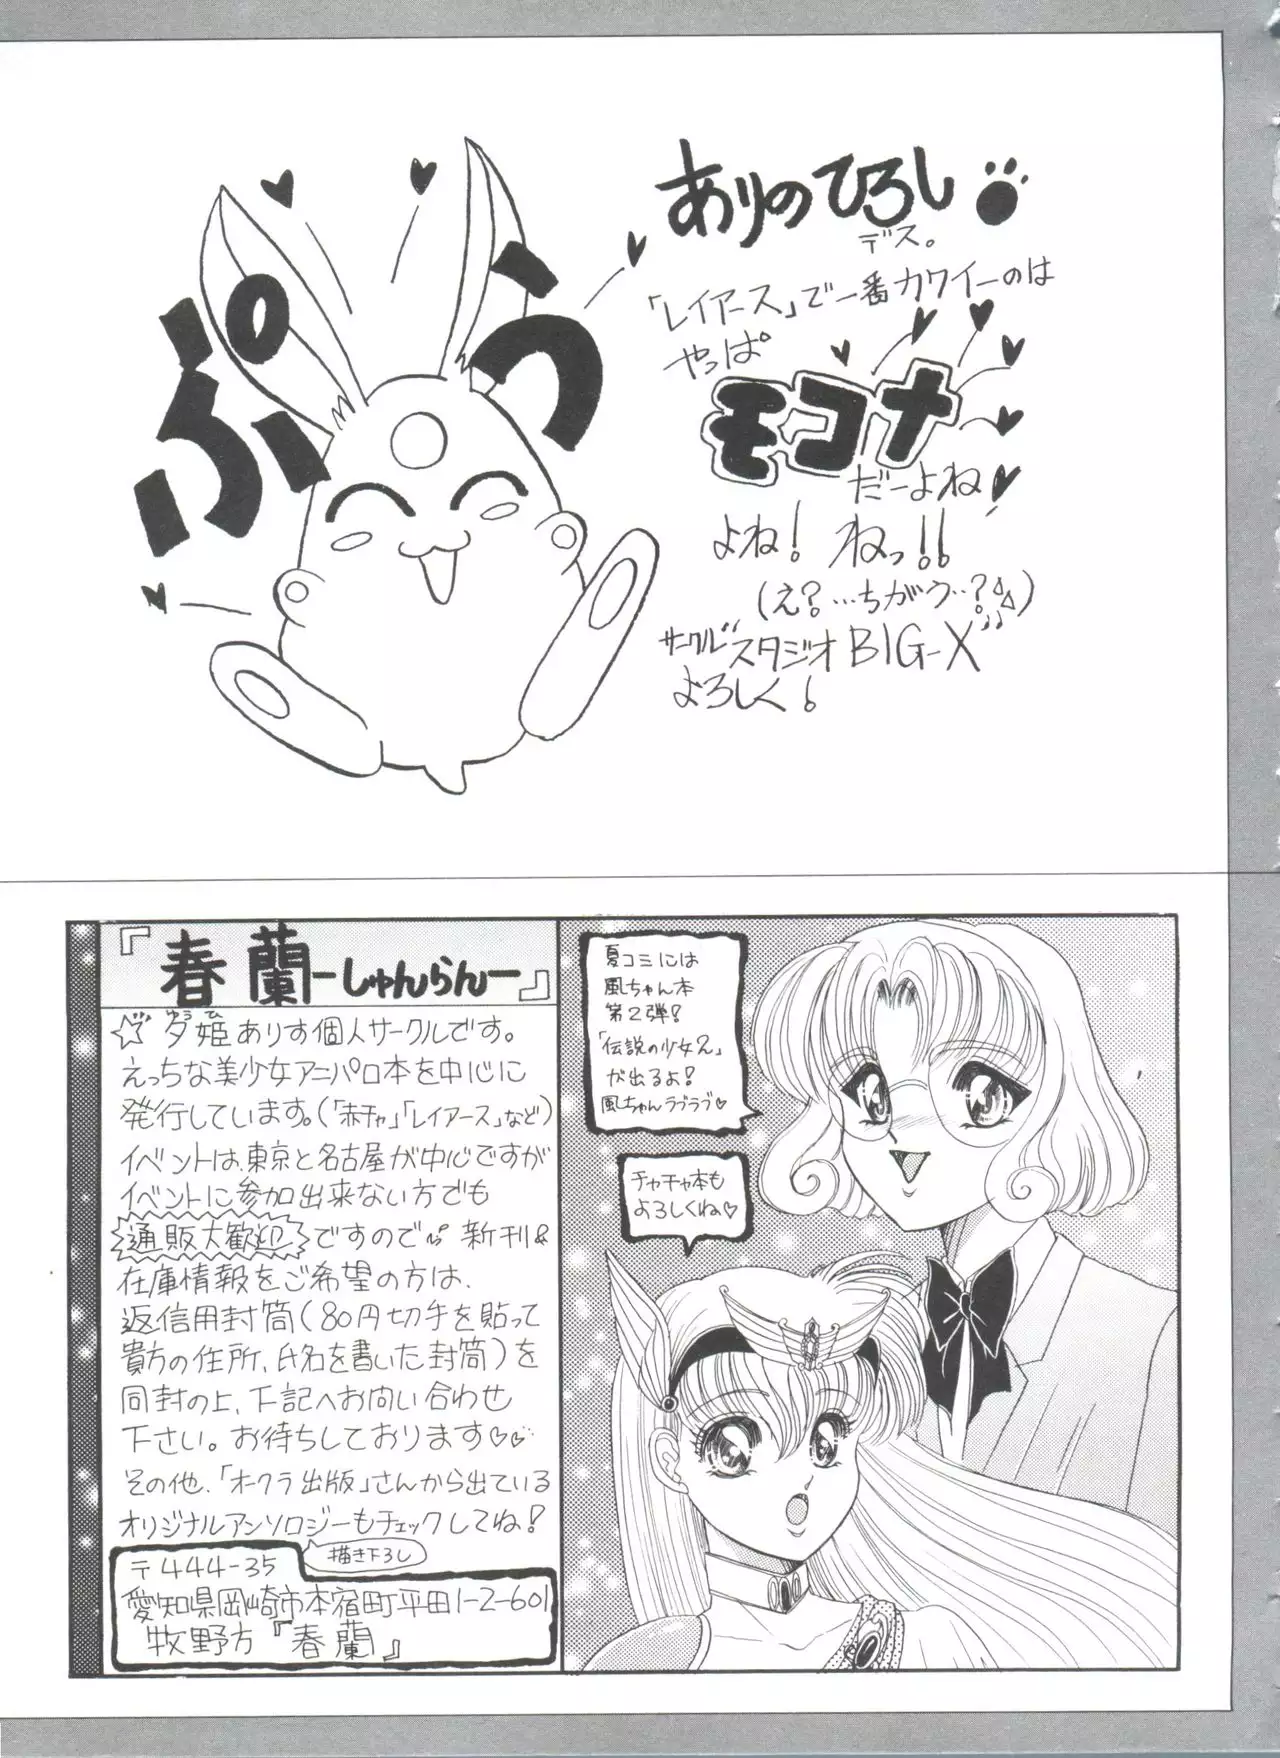 ぷう
ありのひろし
デス。
「レイアース」で一番カワイーのは
やっぱ
モコナ
だーよね
よね! ねっ!!
(え?…ちがう‥?)
サークル スタジオBIG-X
よろしく!
『春蘭ーしゅんらんー』
☆夕姫ありす個人サークルです。
ゆうひ
えっちな美少女アニパロ本を中心に
発行しています。(「赤チャ」「レイアース」など)
イベントは、東京と名古屋が中心ですが
イベントに参加出来ない方でも
通販大歓迎ですので 新刊&
在庫情報をご希望の方は、
返信用封筒(80円切手を貼って
貴方の住所、氏名を書いた封筒)を
同封の上、下記へお問い合わせ
下さい。お待ちしております♡♡
その他、「オークラ出版」さんから出ている
オリジナルアンソロジーもチェックしてね!
描き下ろし
〒444-35
愛知県岡崎市本宿町平田1-2-601
牧野方『春蘭』
夏コミには
風ちゃん本
第2弾!
「伝説の少女2」
が出るよ!
風ちゃんラブラブ♡
チャチャ本も
よろしくね♡